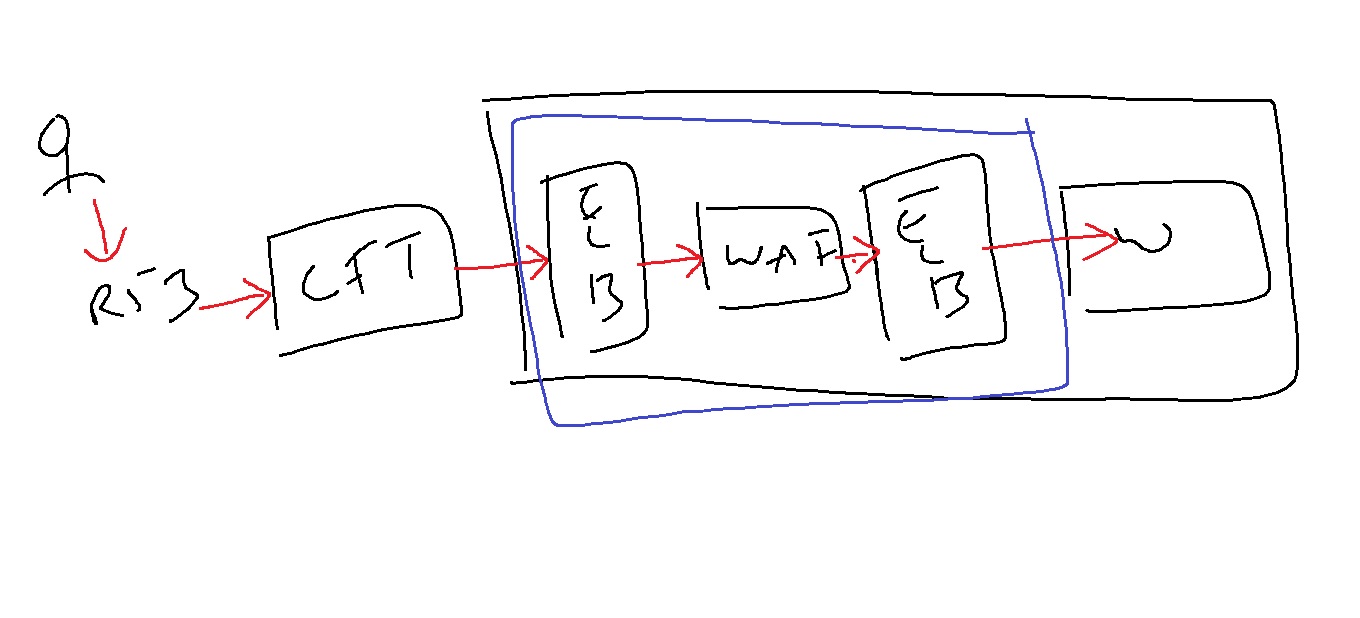 R53
CFT
ELB
WAF
ELB
W